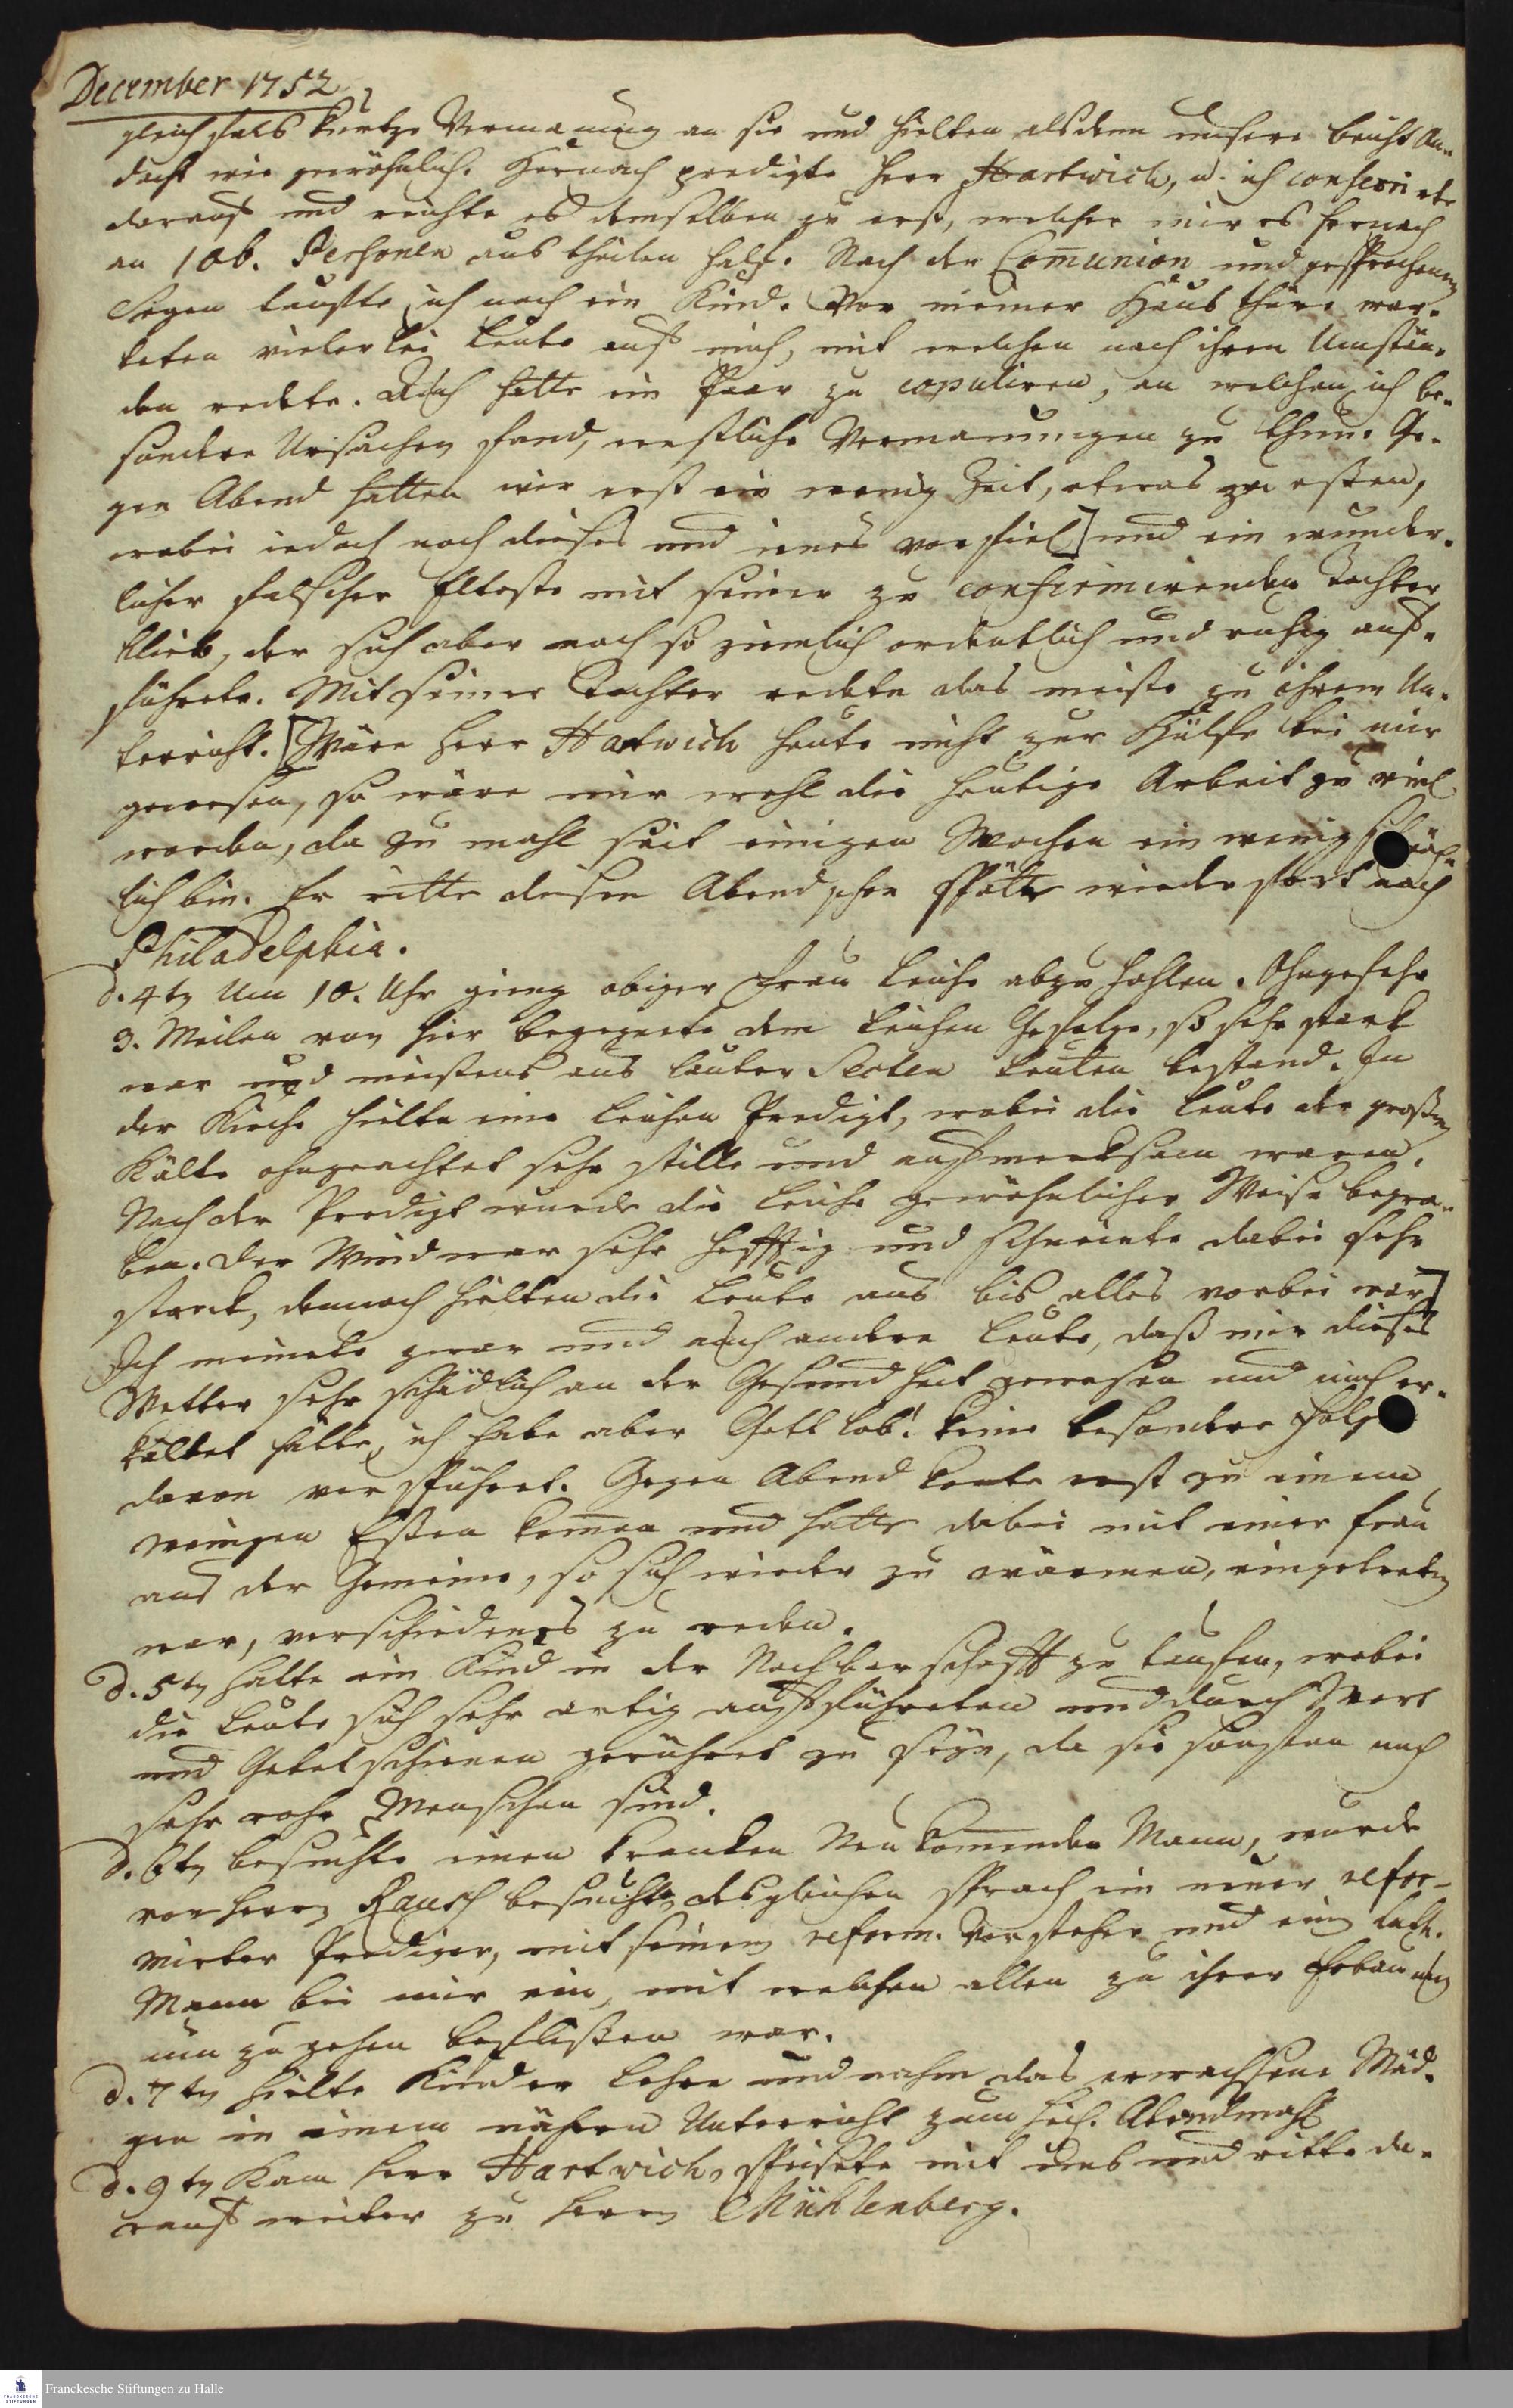 December 1752
gleichfals kurtze Vermanung an sie und hielten alsdenn unsere beicht An-
dacht wie gewöhnlich. Hernach predigte Herr Hartwich, u. ich consecrirte
darauf und reichte es demselben zu erst, welcher mir es hernach
an 106. Personen aus theilen half. Nach der Com̄union und gesprochenen
Segen taufte ich noch ein Kind. Vor meiner Haus thüre war-
teten vielerlei Leute auf mich, mit welchen nach ihren Umstän-
den redete. Auch hatte ein Paar zu copuliren, an welchen ich be-
sondere Ursachen fand, ernstliche Vermanungen zu thun. Ge-
gen Abend hatten wir erst ein wenig Zeit, etwas zu essen,
wobei iedoch noch dieses und ienes vorfiel] und ein wunder-
licher falscher Elteste mit seiner zu confirmirenden Tochter
blieb, der sich aber noch so ziemlich ordentlich und ruhig auf-
führete. Mit seiner Tochter redete das meiste zu ihrem Un-
terricht. [Wäre Herr Hartwich heute nicht zur Hülfe bei mir
gewesen, so wäre mir wohl die heutige Arbeit zu viel
worden, da zu mahl seit einigen Wochen ein wenig
lich bin. Er ritte diesen Abend schon späte wieder fort nach
Philadelphia.
d. 4tn Um 10. Uhr gieng obiger Frau Leiche abzu hohlen. Ohngefehr
3. Meilen von hier begegnete dem Leichen Gefolge, so sehr stark
war und meistens aus lauter Secten Leuten bestand. In
der Kirche hielte eine Leichen Predigt, wobei die Leute der grossen
Kälte ohngeachtet sehr stille und aufmerksam waren.
Nach der Predigt wurde die Leiche gewöhnlicher Weise begra-
ben. Der Wind war sehr hefftig und schneiete dabei sehr
starck, dennoch hielten die Leute aus bis alles vorbei war]
Ich meinete zwar und auch andere Leute, daß mir dieses
Wetter sehr schädlich an der Gesundheit gewesen und mich er-
kältet hätte, ich habe aber Gott lob! keine besondere
davon verspühret. Gegen Abend konte erst zu einem
wenigen Essen kom̄en und hatte dabei mit einer Frau
aus der Gemeine, so sich wieder zu wärmen, eingetreten
war, verschiedenes zu reden.
d. 5tn hatte ein Kind in der Nachbarschafft zu taufen, wobei
die Leute sich sehr artig aufführeten und durch Wort
und Gebet schienen gerühret zu seyn, da sie sonsten noch
sehr rohe Menschen sind.
d. 6tn besuchte einen kranken Neukom̄enden Mann, wurde
von Herrn Rausch besucht, desgleichen sprach ein neuer refor-
mirter Prediger, mit seinem reform. Vorsteher und ein luth.
Mann bei mir ein, mit welchen allen zu ihrer Erbauung
um zu gehen beflissen war.
d. 7tn hielte Kinder Lehre und nahm das erwachsene Mäd-
gen in einem nähern Unterricht zum heil. Abendmahl
d. 9tn Kam Herr Hartwich, speisete mit uns und ritte da-
rauf weiter zu Herrn Mühlenberg.
Franckesche Stiftungen zu Halle